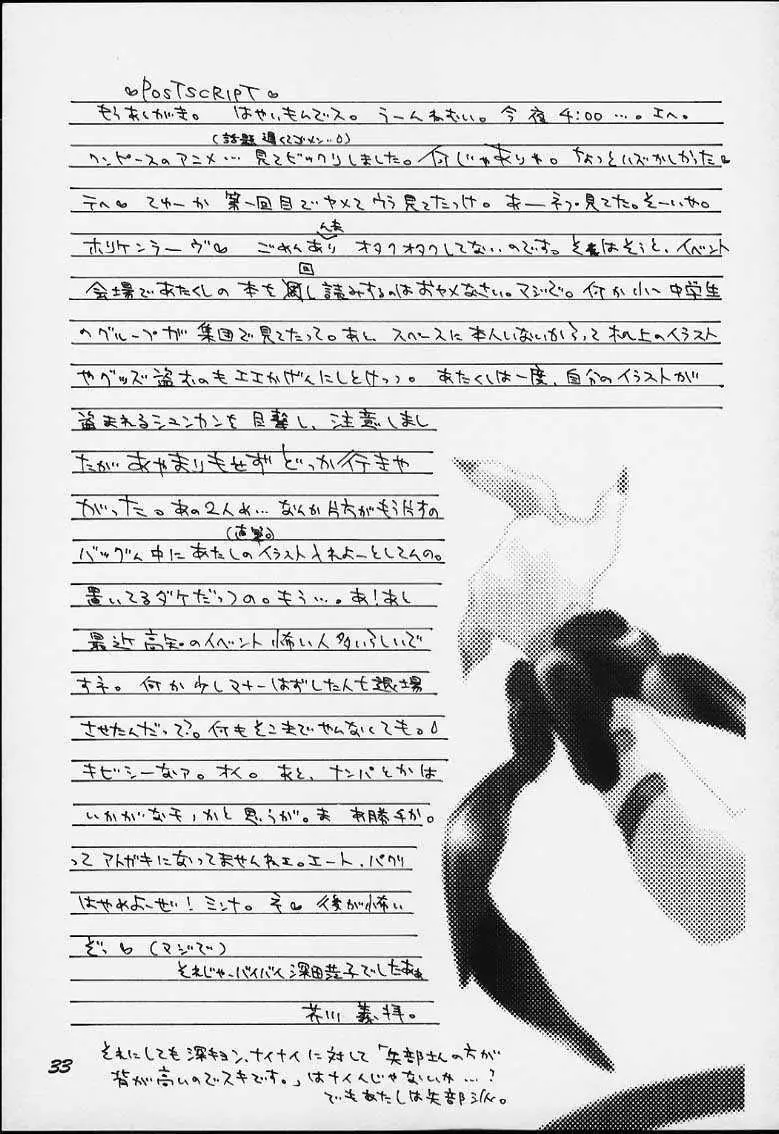 ♡POSTSCRIPT♡
もうあとがき。 はやいもんでス。 うーんねむい。今夜4:00…。エヘ。
(話題遅くてゴメン…)
ワンピースのアニメ… 見てビックリしました。何じゃありゃ。ちょっとハズかしかった♡
テヘ♡ てゆーか 第一回目でヤメてウラ見てたっけ。あーネプ見てた。そーいや。
ホリケンラーヴ♡ ごめんあんまりオタクオタクしてないのです。それはそうと、イベント
会場であたくしの本を回し読みするのはおヤメなさい。マジで。何か小〜中学生
のグループが 集団で見てたって。あと、スペースに本人いないからって机上のイラスト
やグッズ盗むのもエエかげんにしとけっっ。 あたくしは一度、自分のイラストが
盗まれるシュンカンを目撃し、注意しまし
たがあやまりもせずどっか行きや
がった。あの2人め… なんか片方がもう片方の
(直筆。)
バッグん中にあたしのイラスト入れよーとしてんの。
置いてるダケだっつの。もう…。あ!あと
最近高知のイベント怖い人多いらしいで
すネ。何か少しマナーはずした人を退場
させたんだって?。何もそこまでやんなくても。
キビシーなァ。オイ。 あと、ナンパとかは
いかがなモノかと思うが。ま お勝手か。
ってアトガキになってませんねェ。エート、パクリ
はやめよーぜ! ミンナ。ネ♡ 後が怖い
ぞっ♡ (マジで)
それじゃーバイバイ深田恭子でしたあぁ
芥川 義 拝。
それにしても深キョン、ナイナイに対して「矢部さんの方が
背が高いのでスキです。」はナイんじゃないか…?
でもあたしは矢部派。
33